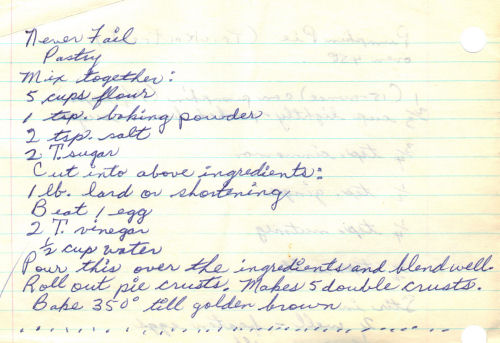 Never Fail
Pastry
Mix together:
5 cups flour
1 tsp. baking powder
2 tsp. salt
2 T. sugar
Cut into above ingredients:
1 lb. lard or shortening
Beat 1 egg
2 T. vinegar
1/2 cup water
Pour this over the ingredients and blend well.
Roll out pie crusts. Makes 5 double crusts.
Bake 350° till golden brown